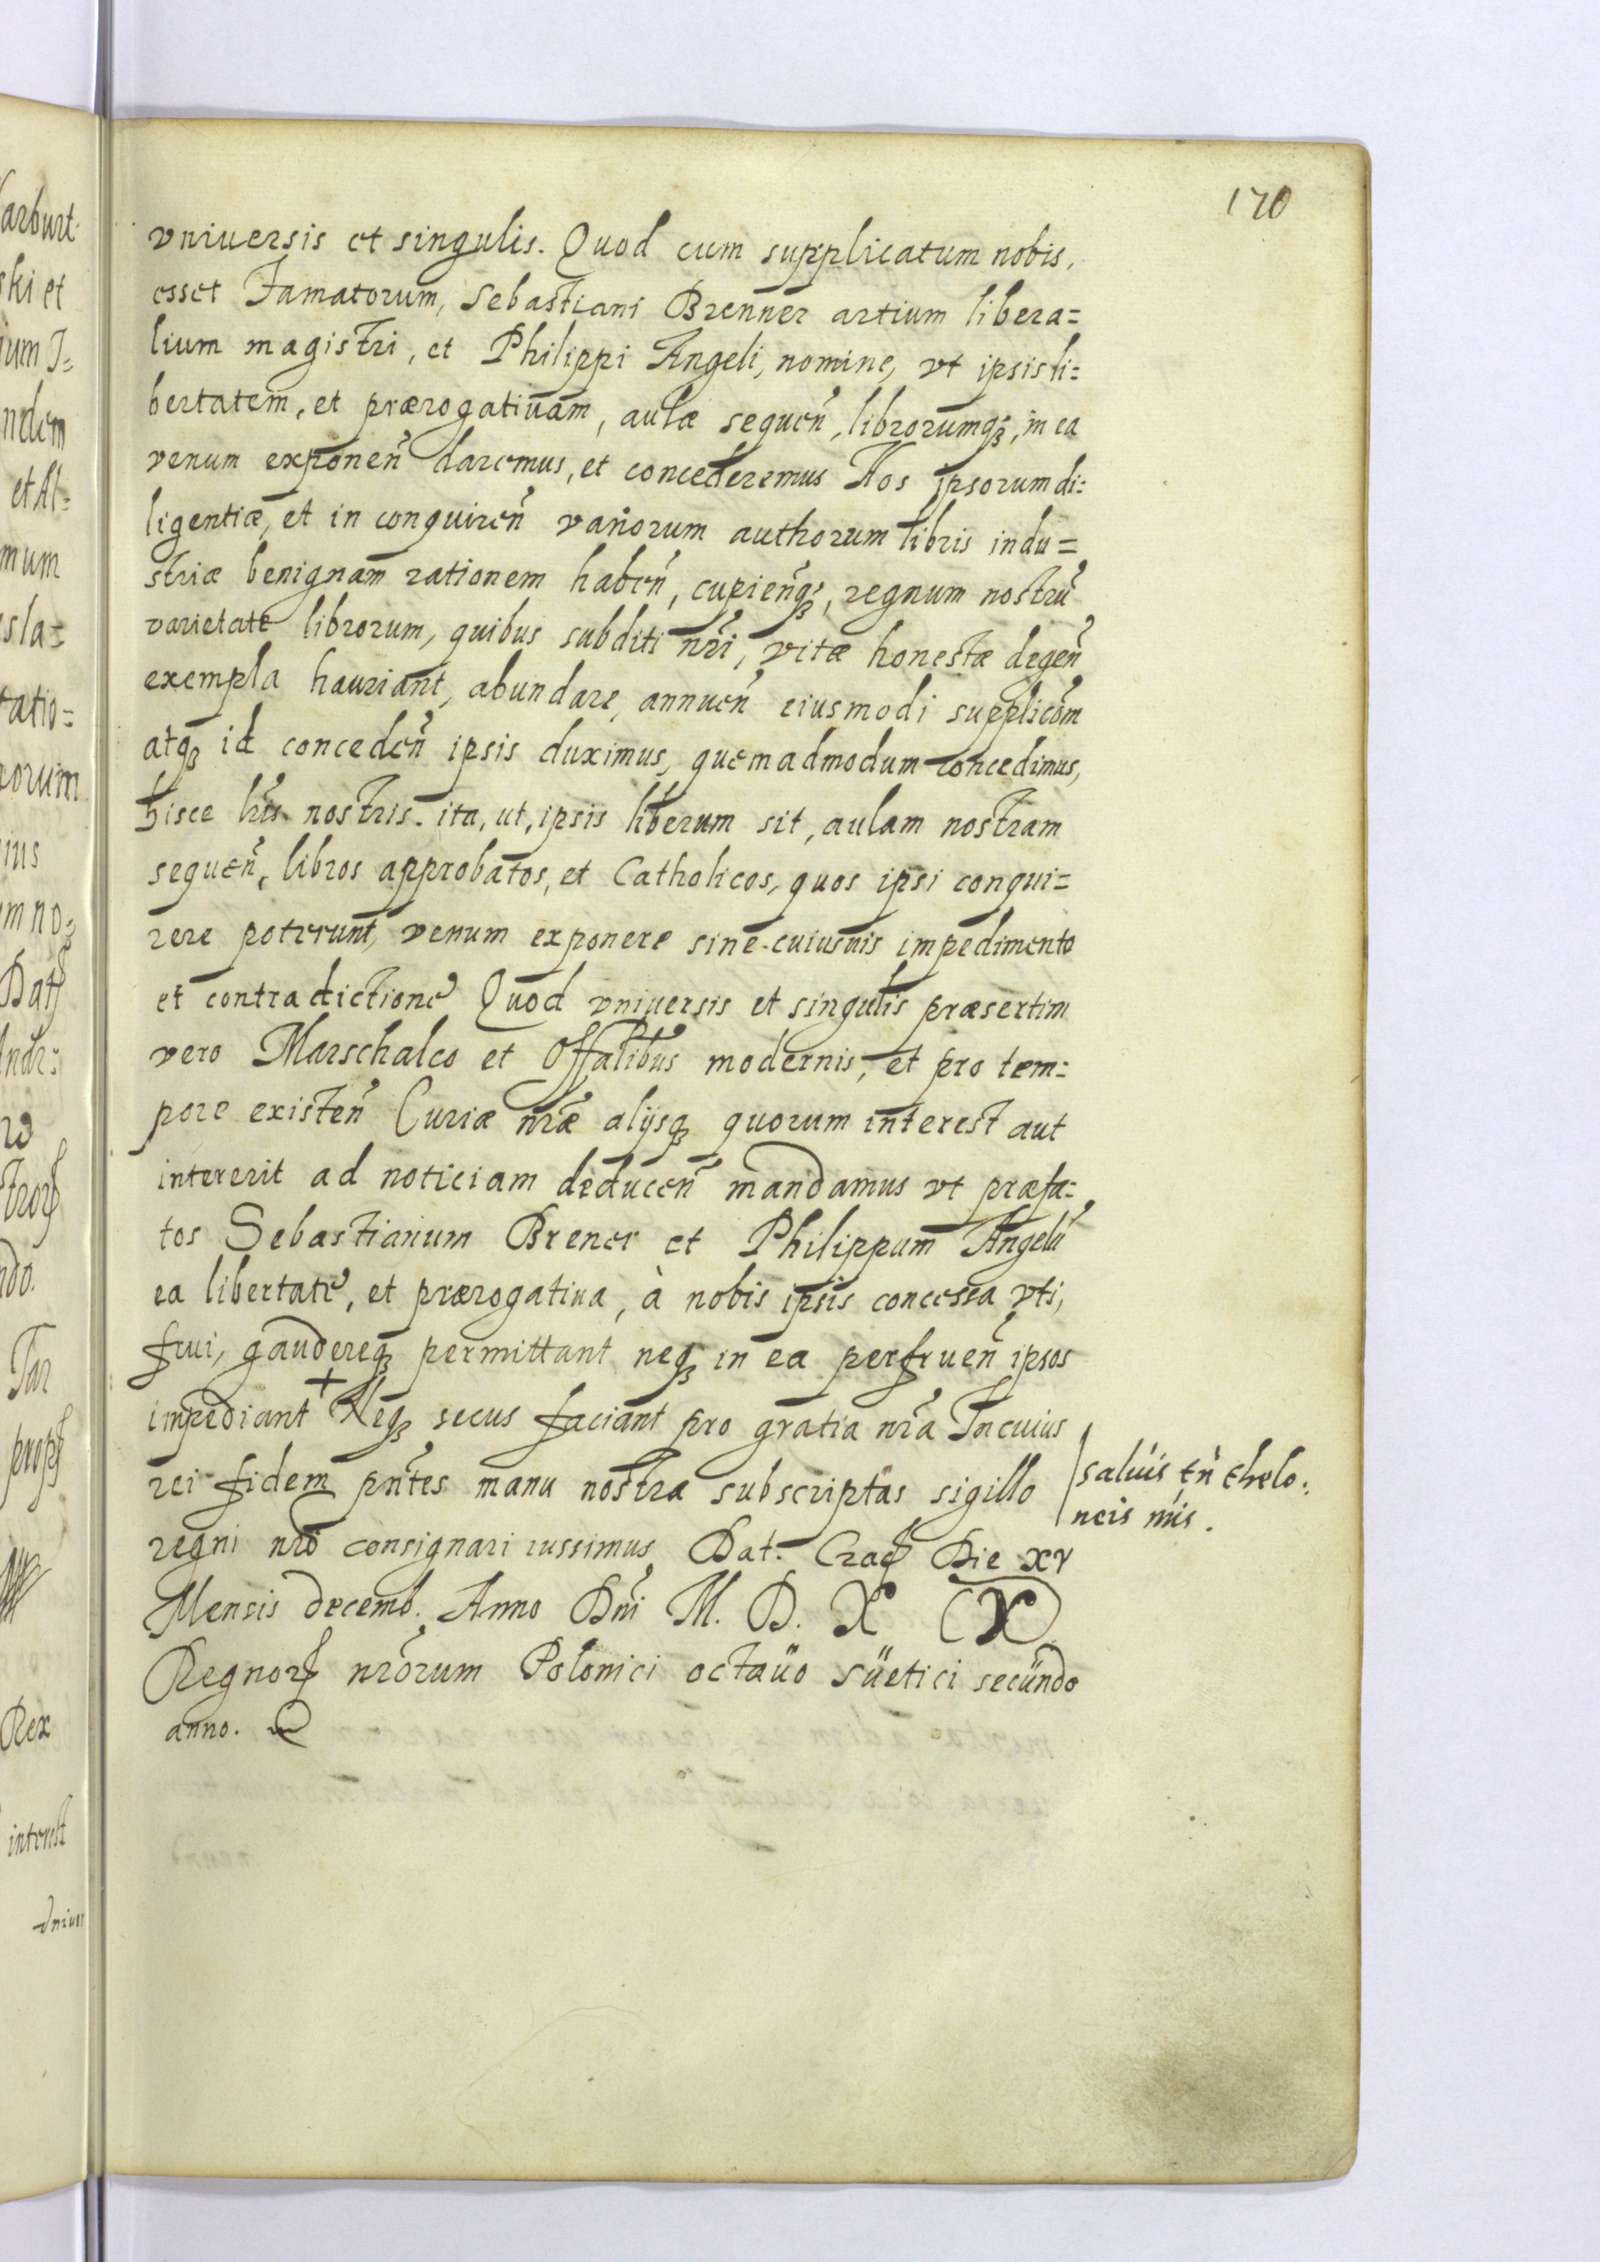 170
vniuersis et singulis. Quod cum supplicatum nobis,
esset Famatorum, Sebastiani Brenner artium libera=
lium magistri, et Philippi Angeli, nomine, vt ipsis li=
bertatem, et prærogatiuam, aulæ sequen̄, librorumq;, in ea
venum exponen̄ daremus, et concederemus Nos ipsorum di=
ligentiæ, et in conquiren̄ variorum authorum libris indu=
striæ benignam rationem haben̄, cupienq;, regnum nostrū
varietate librorum, quibus subditi nr̄i, vitæ honestæ degen̄
exempla hauriant, abundare, annuen̄ eiusmodi supplicōm
atq; id conceden̄ ipsis duximus, quemadmodum concedimus,
hisce lr̄is nostris. ita, ut, ipsis liberum sit, aulam nostram
sequen̄, libros approbatos, et Catholicos, quos ipsi conqui=
rere poterunt, venum exponere sine cuiusuis impedimento
et contradictione Quod vniuersis et singulis præsertim
vero Marschalco et Offalibus modernis, et pro tem=
pore existen̄ Curiæ nr̄æ alijsq; quorum interest aut
intererit ad noticiam deducen̄ mandamus vt præfa=
tos Sebastianum Brener et Philippum Angelū
ea libertate, et prærogatiua, à nobis ipsis concessa vti,
frui, gaudereq; permittant neq; in ea perfruen̄ ipsos
impediant + Neq; secus faciant pro gratia nr̄a In cuius
rei fidem pn̄tes manu nostra subscriptas sigillo
saluis tn̄ thelo=
neis nr̄is.
regni nr̄o consignari iussimus Dat. Crac̄ Die XV
Mensis decemb. Anno Dn̄i M. D. X (X)
Regnor̄ nr̄orum Polonici octaüo Süetici secündo
anno.